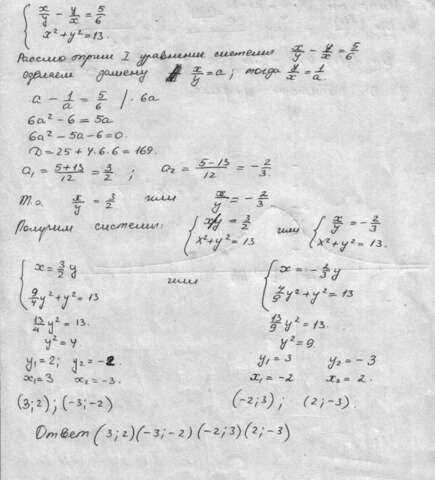 x/y - y/x = 5/6
x² + y² = 13.
Рассмотрим I уравнение системы x/y - y/x = 5/6
сделаем замену x/y = a; тогда y/x = 1/a
a - 1/a = 5/6 | · 6a
6a² - 6 = 5a
6a² - 5a - 6 = 0.
D = 25 + 4·6·6 = 169.
a₁ = (5+13)/12 = 3/2; a₂ = (5-13)/12 = -2/3.
Т.о. x/y = 3/2 или x/y = -2/3
Получим системы: { x/y = 3/2 или { x/y = -2/3
x² + y² = 13 x² + y² = 13.
{ x = 3/2 y или { x = -2/3 y
9/4 y² + y² = 13 4/9 y² + y² = 13
13/4 y² = 13. 13/9 y² = 13.
y² = 4. y² = 9.
y₁ = 2; y₂ = -2. y₁ = 3 y₂ = -3
x₁ = 3 x₂ = -3. x₁ = -2 x₂ = 2.
(3; 2); (-3; -2) (-2; 3); (2; -3).
Ответ (3; 2) (-3; -2) (-2; 3) (2; -3)